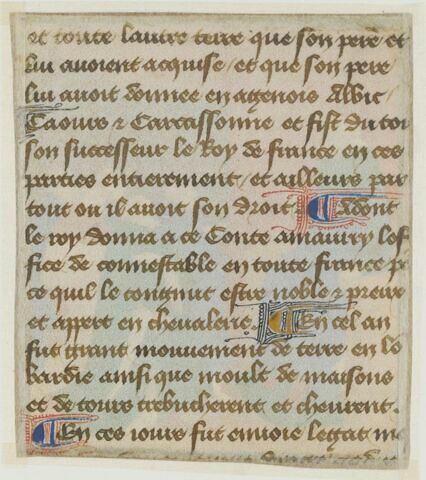 et toute lautre terre que son pere et
lui auoient acquise / et que son pere
lui auoit donnee en agenois Albic
Caours & Carcassonne et fist du tou
son successeur le Roy de france en ces
parties entierement / et ailleurs par
tout ou il auoit son droit. Adont
le roy donna a ce Conte amaurry lof
fice de connestable en toute france p
ce quil le congnut estre noble & preux
et appert en cheualerie. En cel an
fut grant mouuement de terre en lo
bardie ainsi que moult de maisons
et de tours trebucherent et cheurent.
En ces iours fut enuoie legat me